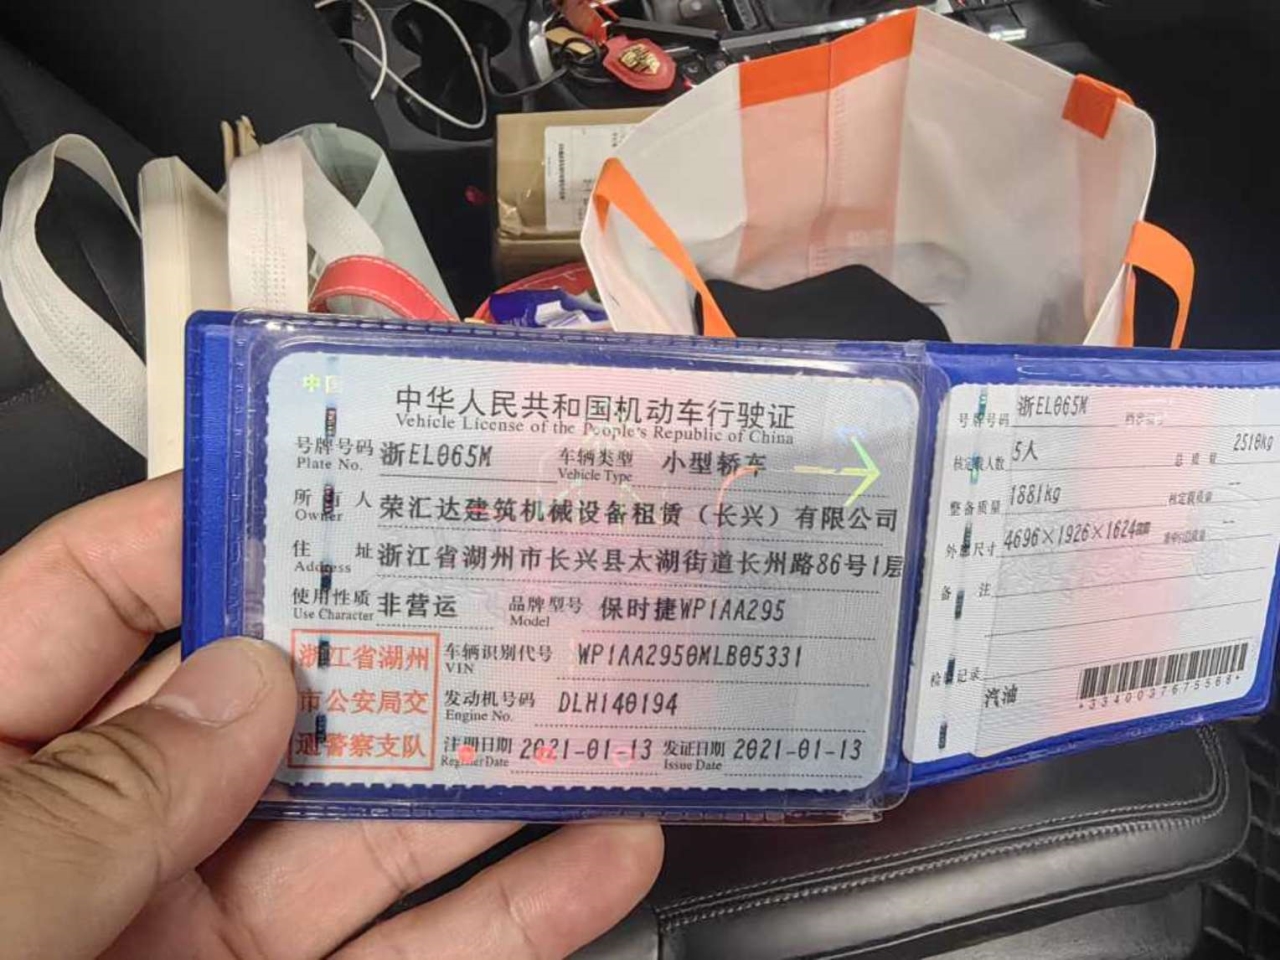 中国
中华人民共和国机动车行驶证
Vehicle License of the People's Republic of China
号牌号码 浙EL065M 车辆类型 小型轿车
Plate No. Vehicle Type
所有人 荣汇达建筑机械设备租赁（长兴）有限公司
Owner
住址 浙江省湖州市长兴县太湖街道长州路86号1层
Address
使用性质 非营运 品牌型号 保时捷WP1AA295
Use Character Model
浙江省湖州
市公安局交
通警察支队
车辆识别代号 WP1AA2950MLB05331
VIN
发动机号码 DLH140194
Engine No.
注册日期 2021-01-13 发证日期 2021-01-13
Register Date Issue Date
号牌号码 浙EL065M 档案编号
核定载人数 5人 总质量 2510kg
整备质量 1881kg 核定载质量 --
外廓尺寸 4696×1926×1624mm --
备注
检验记录
汽油
*3340037675568*